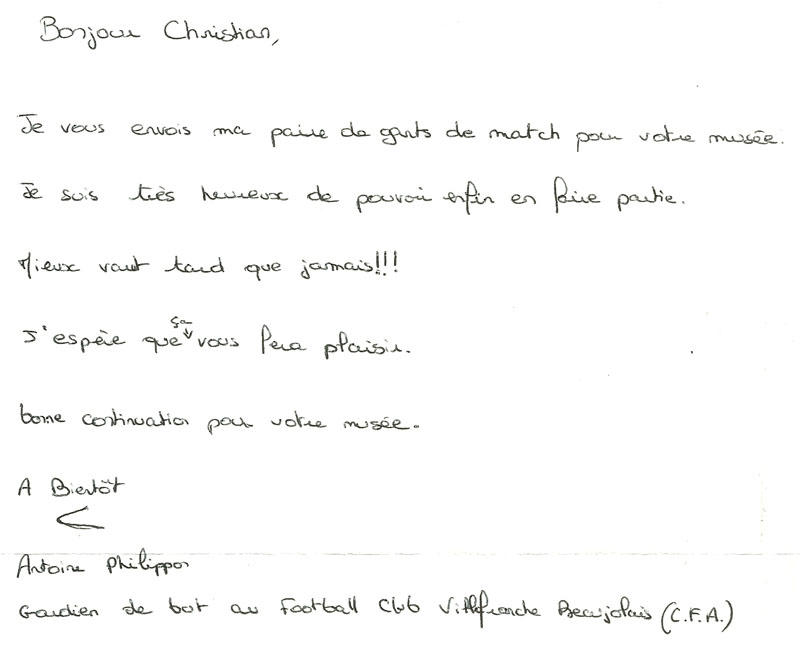 Bonjour Christian,
Je vous envois ma paire de gants de match pour votre musée.
Je suis très heureux de pouvoir enfin en faire partie.
Mieux vaut tard que jamais!!!
J'espère que ça vous fera plaisir.
bonne continuation pour votre musée.
A Bientôt
Antoine Philippon
Gardien de but au Football Club Villefranche Beaujolais (C.F.A.)